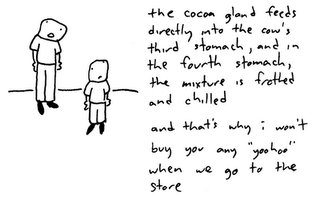 the cocoa gland feeds
directly into the cow's
third stomach, and in
the fourth stomach,
the mixture is frotted
and chilled
and that's why i won't
buy you any "yoohoo"
when we go to the
store